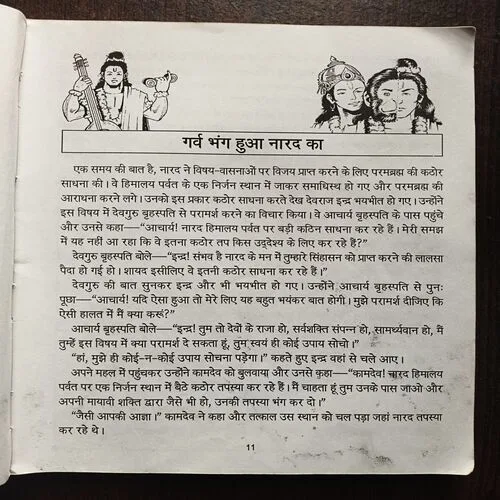 गर्व भंग हुआ नारद का
एक समय की बात है, नारद ने विषय-वासनाओं पर विजय प्राप्त करने के लिए परमब्रह्म की कठोर
साधना की। वे हिमालय पर्वत के एक निर्जन स्थान में जाकर समाधिस्थ हो गए और परमब्रह्म की
आराधना करने लगे। उनको इस प्रकार कठोर साधना करते देख देवराज इन्द्र भयभीत हो गए। उन्होंने
इस विषय में देवगुरु बृहस्पति से परामर्श करने का विचार किया। वे आचार्य बृहस्पति के पास पहुंचे
और उनसे कहा—“आचार्य! नारद हिमालय पर्वत पर बड़ी कठिन साधना कर रहे हैं। मेरी समझ
में यह नहीं आ रहा कि वे इतना कठोर तप किस उद्देश्य के लिए कर रहे हैं?”
देवगुरु बृहस्पति बोले—“इन्द्र! संभव है नारद के मन में तुम्हारे सिंहासन को प्राप्त करने की लालसा
पैदा हो गई हो। शायद इसीलिए वे इतनी कठोर साधना कर रहे हैं।”
देवगुरु की बात सुनकर इन्द्र और भी भयभीत हो गए। उन्होंने आचार्य बृहस्पति से पुनः
पूछा—“आचार्य! यदि ऐसा हुआ तो मेरे लिए यह बहुत भयंकर बात होगी। मुझे परामर्श दीजिए कि
ऐसी हालत में मैं क्या करूं?”
आचार्य बृहस्पति बोले—“इन्द्र! तुम तो देवों के राजा हो, सर्वशक्ति संपन्न हो, सामर्थ्यवान हो, मैं
तुम्हें इस विषय में क्या परामर्श दे सकता हूं, तुम स्वयं ही कोई उपाय सोचो।”
“हां, मुझे ही कोई-न-कोई उपाय सोचना पड़ेगा।” कहते हुए इन्द्र वहां से चले आए।
अपने महल में पहुंचकर उन्होंने कामदेव को बुलवाया और उनसे कहा—“कामदेव! नारद हिमालय
पर्वत पर एक निर्जन स्थान में बैठे कठोर तपस्या कर रहे हैं। मैं चाहता हूं तुम उनके पास जाओ और
अपनी मायावी शक्ति द्वारा जैसे भी हो, उनकी तपस्या भंग कर दो।”
“जैसी आपकी आज्ञा।” कामदेव ने कहा और तत्काल उस स्थान को चल पड़ा जहां नारद तपस्या
कर रहे थे।
11